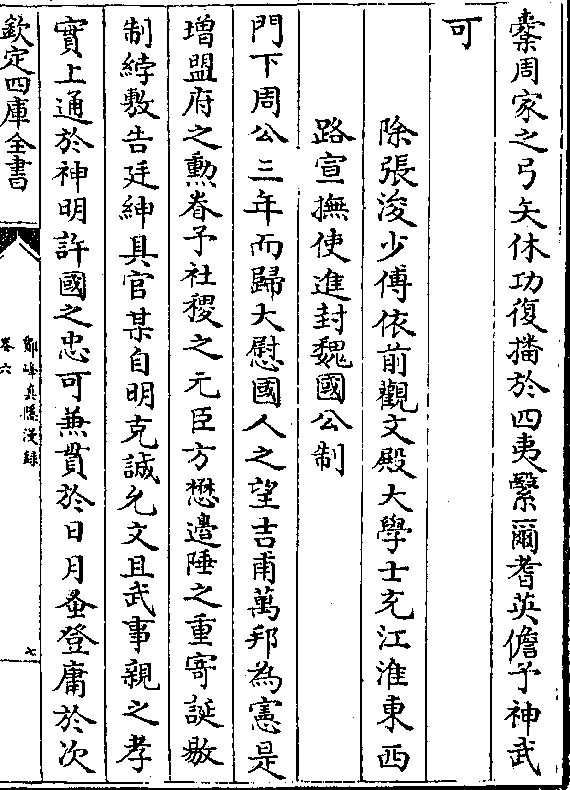 櫜周家之弓矢休功復播於四夷繄爾耆英儋予神武
可
除張浚少傅依前觀文殿大學士充江淮東西
路宣撫使進封魏國公制
門下周公三年而歸大慰國人之望吉甫萬邦為憲是
増盟府之勲眷予社稷之元臣方懋邉陲之重寄誕敭
制綍敷告廷紳具官某自明克誠允文且武事親之孝
實上通於神明許國之忠可兼貫於日月蚤登庸於次
欽定四庫全書
鄮峰真隠漫録
卷六
七